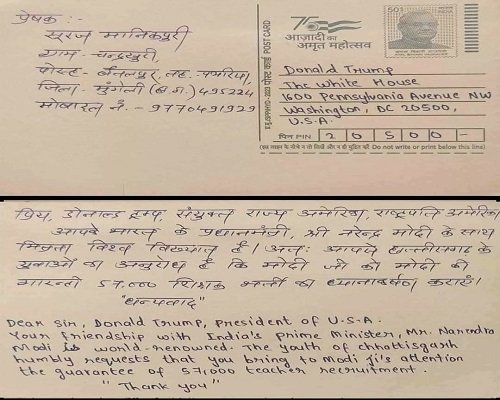 प्रेषक :-
सूरज मानिकपुरी
ग्राम- चन्द्रखुरी,
पोस्ट- बैतलपुर, तह. पथरिया,
जिला- मुंगेली (छ.ग.) 495224
मोबाइल नं. - 9770491929
पोस्ट कार्ड POST CARD
75
आज़ादी का
अमृत महोत्सव
501
Donald Trump
The White House
1600 Pennsylvania Avenue NW
Washington, DC 20500,
U.S.A.
पिन PIN 2 0 5 0 0 -
(इस लाइन के नीचे न तो लिखें और न ही मुद्रित करें Do not write or print below this line)
प्रिय, डोनाल्ड ट्रम्प, संयुक्त राज्य अमेरिका, राष्ट्रपति अमेरिका
आपके भारत के प्रधानमंत्री, श्री नरेन्द्र मोदी के साथ
मित्रता विश्व विख्यात है। अतः आपसे छत्तीसगढ़ के
युवाओं का अनुरोध है कि मोदी जी को मोदी की
गारन्टी 57,000 शिक्षक भर्ती का ध्यानाकर्षण कराएं।
"धन्यवाद"
Dear Sir, Donald Trump, President of U.S.A.
Your friendship with India's Prime Minister, Mr. Narendra
Modi is world-renowned. The youth of chhattisgarh
humbly requests that you bring to Modi ji's attention
the guarantee of 57,000 teacher recruitment.
"Thank you"